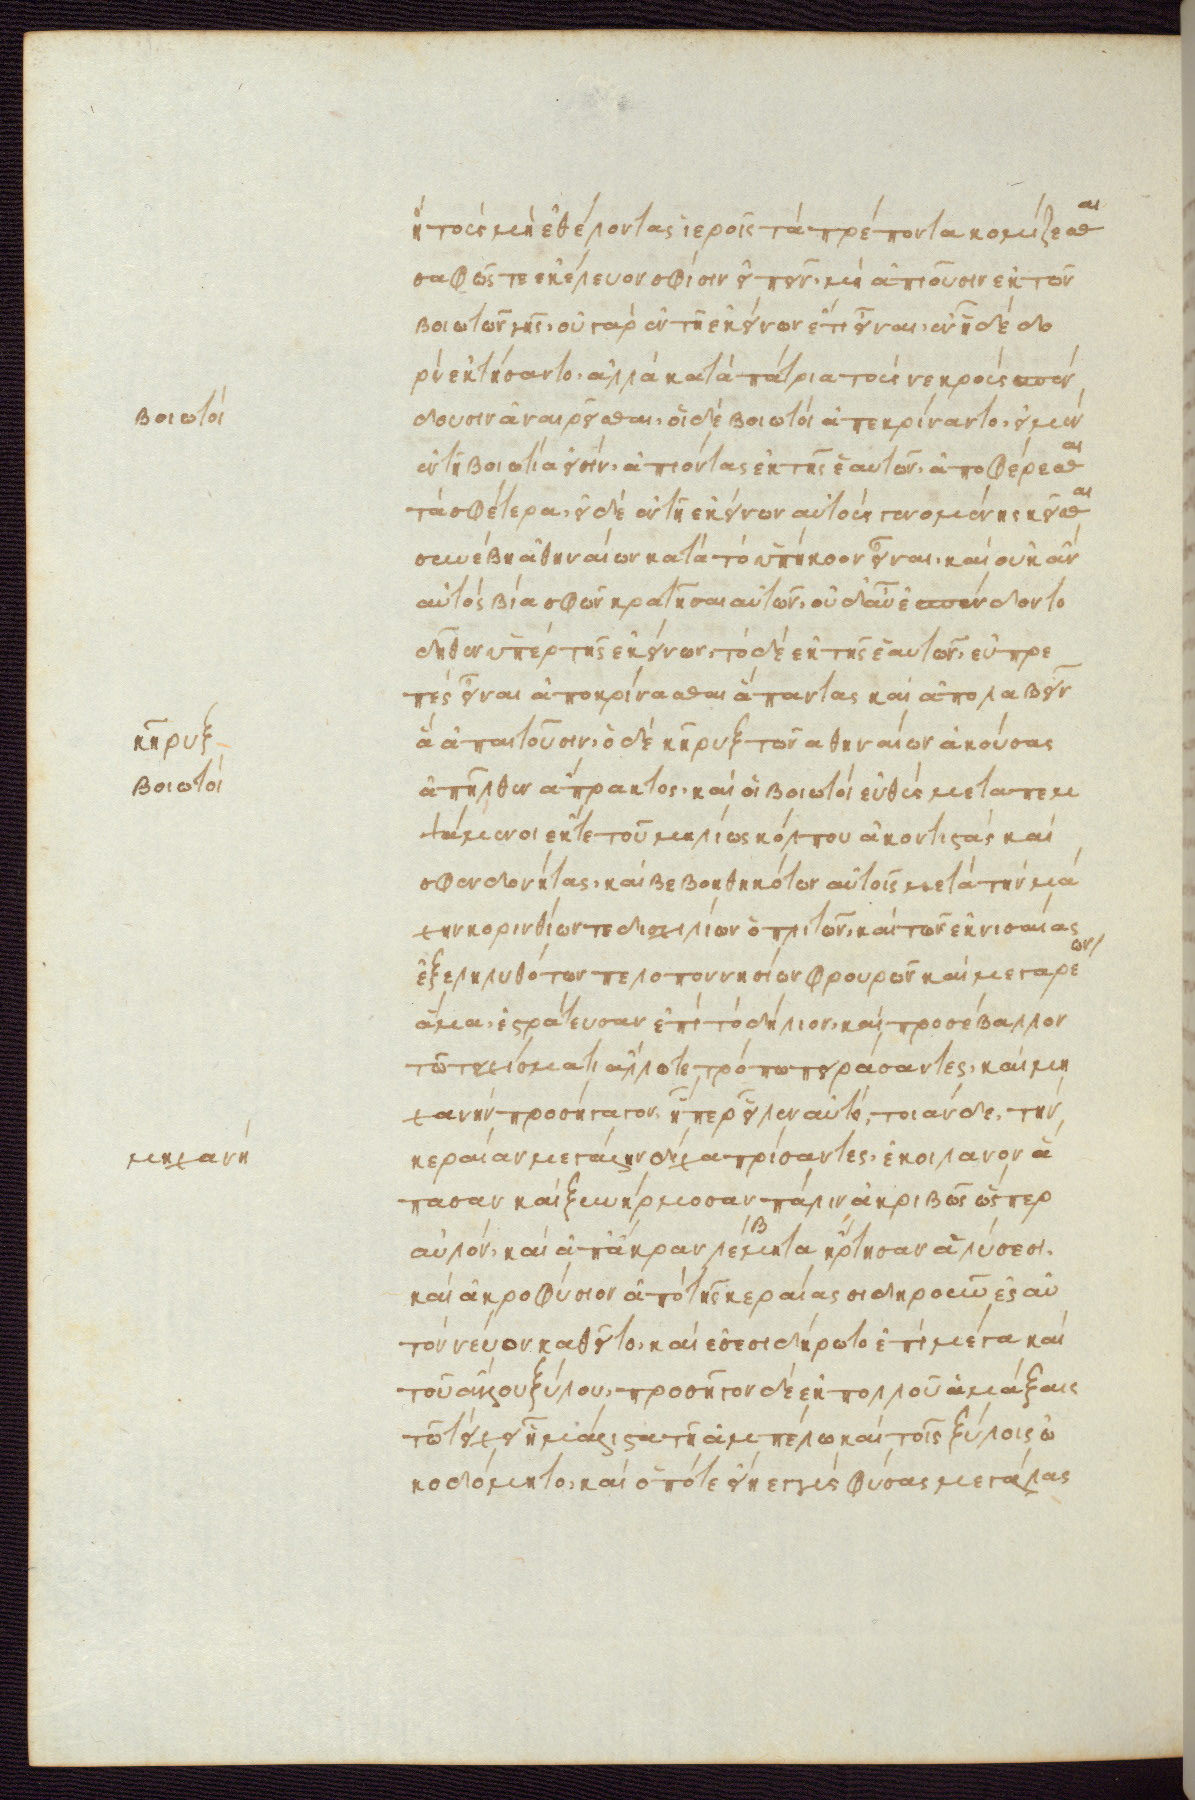 ἢ τοὺς μὴ ἐθέλοντας ἱεροῖς τὰ πρέποντα κομίζεσθαι
σαφῶς τε ἐκέλευον σφίσιν εἰπεῖν. μὴ ἀπιοῦσιν ἐκ τῶν
βοιωτῶν γῆς. οὐ γὰρ ἐν τῇ ἐκείνων ἔτι εἶναι. ἐν ᾗ δὲ δο
ρὶ ἐκτήσαντο. ἀλλὰ κατὰ πάτρια τοὺς νεκροὺς σπέν
βοιωτοί
δουσιν ἀναιρεῖσθαι. οἱ δὲ βοιωτοὶ ἀπεκρίναντο. εἰ μὲν
ἐν τῇ βοιωτίᾳ εἰσίν. ἀπιόντας ἐκ τῆς ἑαυτῶν. ἀποφέρεσθαι
τὰ σφέτερα. εἰ δὲ ἐν τῇ ἐκείνων αὐτοὺς γενομένης κεῖσθαι
συνέβη ἀθηναίων κατὰ τὸ ὑπήκοον εἶναι. καὶ οὐκ ἂν
αὐτὸς βίᾳ σφῶν κρατῆσαι αὐτῶν. οὐδ' αὖ ἐσπένδοντο
δῆθεν ὑπὲρ τῆς ἐκείνων. τὸ δὲ ἐκ τῆς ἑαυτῶν. εὐπρε
πὲς εἶναι ἀποκρίνασθαι ἅπαντας καὶ ἀπολαβεῖν
κῆρυξ
ἃ ἀπαιτοῦσιν. ὁ δὲ κῆρυξ τῶν ἀθηναίων ἀκούσας
βοιωτοί
ἀπῆλθεν ἄπρακτος. καὶ οἱ βοιωτοὶ εὐθὺς μεταπεμ
ψάμενοι ἔκ τε τοῦ μηλιῶς κόλπου ἀκοντιστὰς καὶ
σφενδονήτας. καὶ βεβοηθηκότων αὐτοῖς μετὰ τὴν μά
χην κορινθίων τε δισχιλίων ὁπλιτῶν. καὶ τῶν ἐκ νισαίας
ἐξεληλυθότων πελοποννησίων φρουρῶν καὶ μεγαρέων
ἅμα. ἐστράτευσαν ἐπὶ τὸ δήλιον. καὶ προσέβαλλον
τῷ τειχίσματι ἄλλοτε τρόπῳ πειράσαντες. καὶ μη
χανὴν προσήγαγον. ἥπερ εἷλεν αὐτό. τοιάνδε. τὴν
μηχανή
κεραίαν μεγάλην δίχα πρίσαντες. ἐκοίλαναν ἅ
πασαν καὶ ξυνήρμοσαν πάλιν ἀκριβῶς ὥσπερ
αὐλόν. καὶ ἐπ' ἄκραν λέβητα ἤρτησαν ἁλύσεσι.
καὶ ἀκροφύσιον ἀπὸ τῆς κεραίας σιδηροῦν ἐς αὐ
τὸν νεῦον καθεῖτο. καὶ ἐσεσιδήρωτο ἐπὶ μέγα καὶ
τοῦ ἄλλου ξύλου. προσῆγον δὲ ἐκ πολλοῦ ἁμάξαις
τῷ τείχει ᾗ μάλιστα τῇ ἀμπέλῳ καὶ τοῖς ξύλοις ᾠ
κοδόμητο. καὶ ὁπότε εἴη ἐγγὺς φύσας μεγάλας